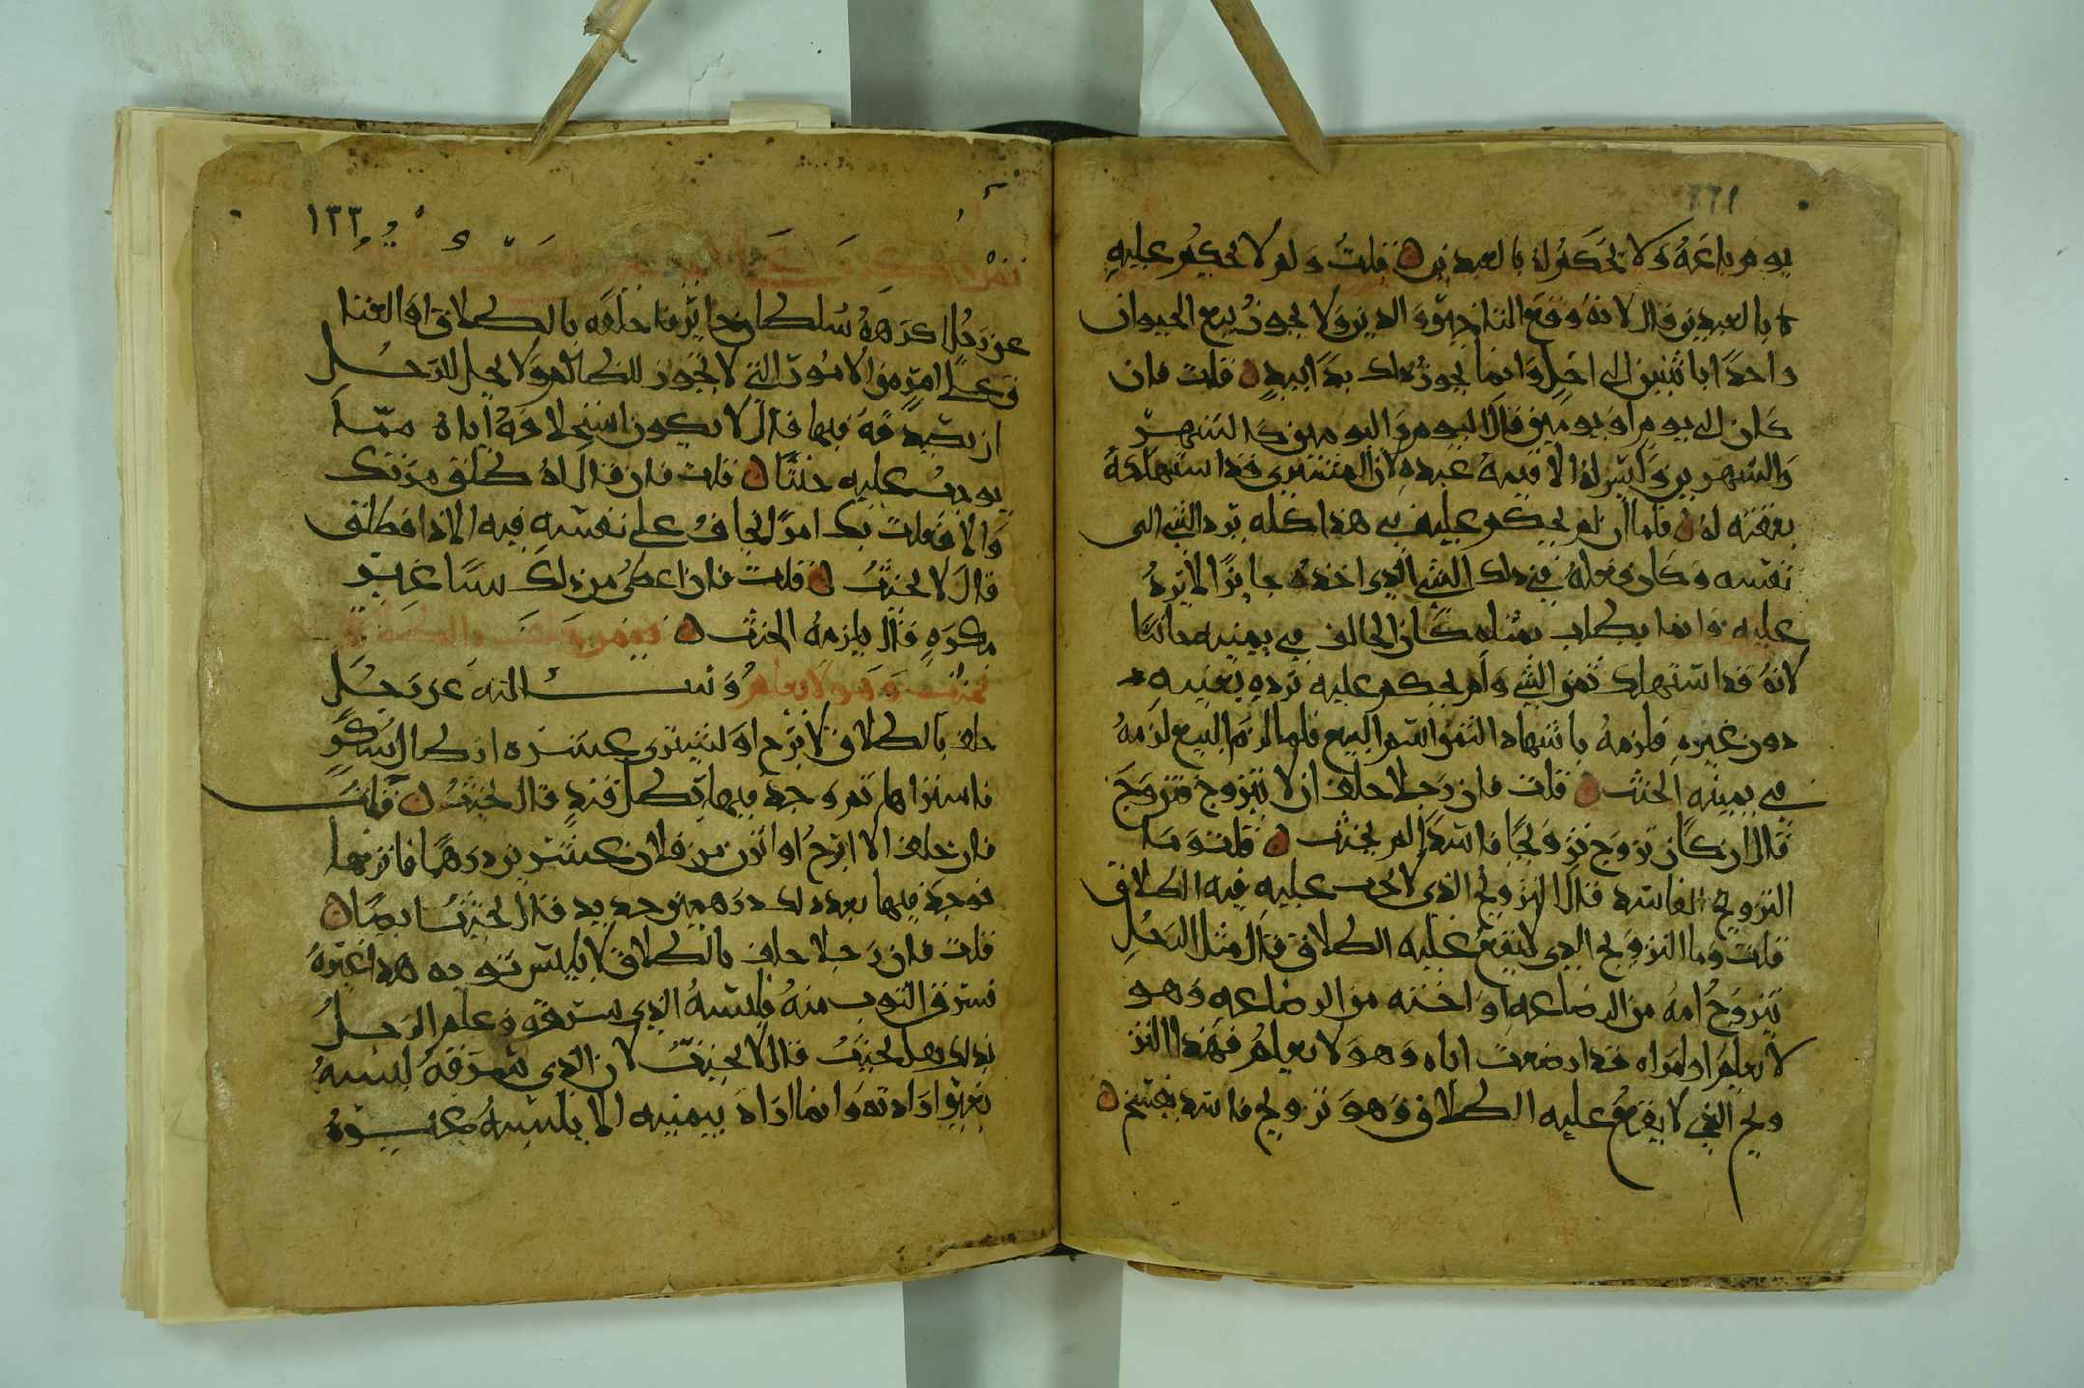 يوم باعه ولا يحكم له بالعبدين قلت ولم لا يحكم عليه
بالعبدين قال لانه وقع التاخير والدين ولا يجوز بيع الحيوان
واحدا باثنين الى اجل وانما يجوز ذلك يدا بيد قلت فان
كان الى يوم او يومين قال اليوم واليومين كالشهر
والشهرين وليس له الا قيمة عبده لان المشتري قد استهلكه
بعتقه له فلما ان لم يحكم عليه في هذا كله برد الشي الى
نفسه وكان فعله في ذلك الشي الذي اخذه جايزا لا يرده
عليه وانما يطلب بمثله كان الحالف في يمينه حانثا
لانه قد استهلك ثمن الشي ولم يحكم عليه برده بعينه
دون غيره فلزمه باستهلاك الثمن اسم البيع فلما لزم البيع لزمه
في يمينه الحنث قلت فان رجلا حلف ان لا يتزوج فتزوج
قال ان كان تزوج تزويجا فاسدا لم يحنث قلت وما
التزويج الفاسد قال التزويج الذي لا يجب عليه فيه الطلاق
قلت وما التزويج الذي لا يقع عليه الطلاق قال مثل الرجل
يتزوج امه من الرضاعه او اخته من الرضاعه وهو
لا يعلم او امراه قد ارضعت اباه وهو لا يعلم فهذا التز
ويج الذي لا يقع عليه الطلاق وهو تزويج فاسد يفسخ
١٣٣
عن رجل اكرهه سلطان جاير فاحلفه بالطلاق او العتا
ق على امر من الامور التي لا تجوز للظالم ولا يحل للرجل
ان يصدقه فيها قال لا يكون استحلافه اياه مما
يوجب عليه حنثا قلت فان قال له طلق مرتك
والا فعلت بك امرا يخاف على نفسه فيه الاذا فطلق
قال لا يحنث قلت فان اعطى من ذلك شيا غير
مكره قال يلزمه الحنث
يحنث وهو لا يعلم وسالته عن رجل
حلف بالطلاق لا برح او ليشتري عشره ارطال سكر
فاشتراها ثم وجد فيها رطل قند قال يحنث قلت
فان حلف الا ابرح او اتزن من فلان عشرين درهما فاتزنها
فوجد فيها بعد ذلك درهمين حديد قال يحنث ايضا
قلت فان رجلا حلف بالطلاق لا يلبس ثوبه هذا غيره
فسرق الثوب منه فلبسه الذي سرقه وعلم الرجل
بذلك هل يحنث قال لا يحنث لان الذي سرقه لبسه
بغير ارادته وانما اراد بيمينه الا يلبسه غيره